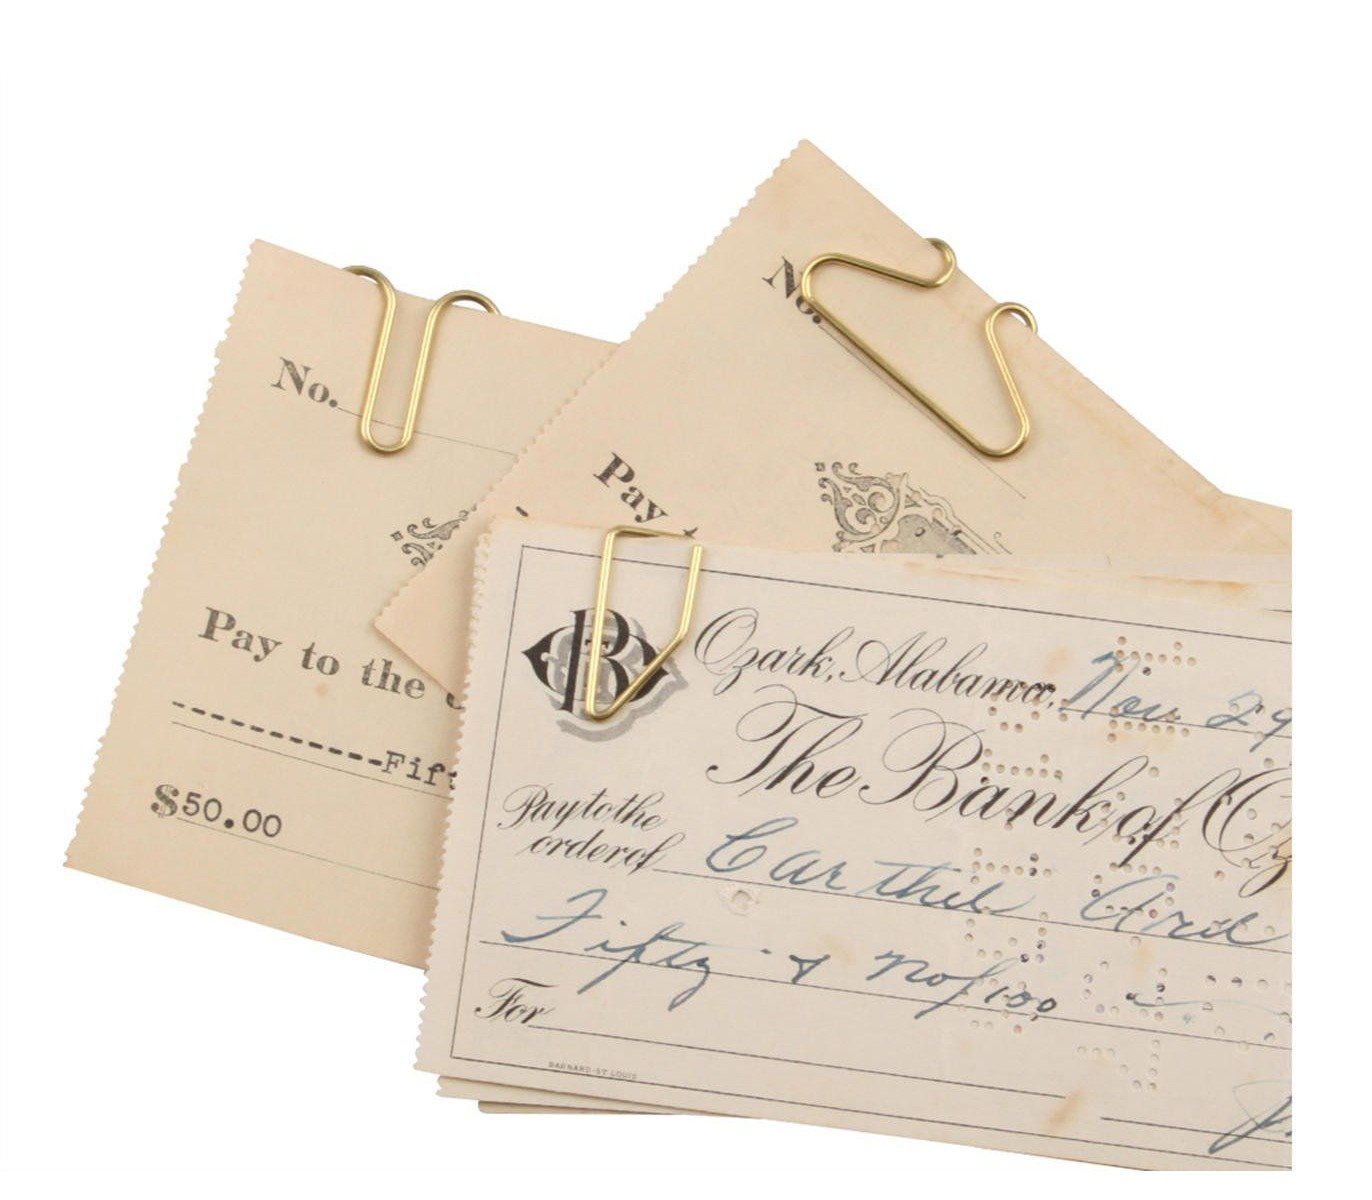 No.
Pay to the
----------Fift
$50.00
No.
Pay
Ozark, Alabama, Nov 29
The Bank of Oz
Pay to the
order of Carthel Ard
Fifty & no/100
For
BARNARD-ST LOUIS